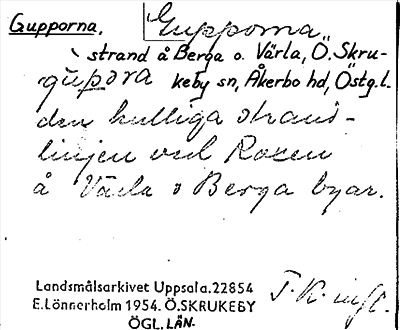 Gupporna.
Gupporna
strand å Berga o. Värla, Ö. Skru-
gupora keby sn, Åkerbo hd, Östg. l.
den kulliga strand-
linjen vid Roxen
å Värla o Berga byar.
Landsmålsarkivet Uppsala. 22854
E. Lönnerholm 1954. Ö. SKRUKEBY
ÖGL. LÄN.